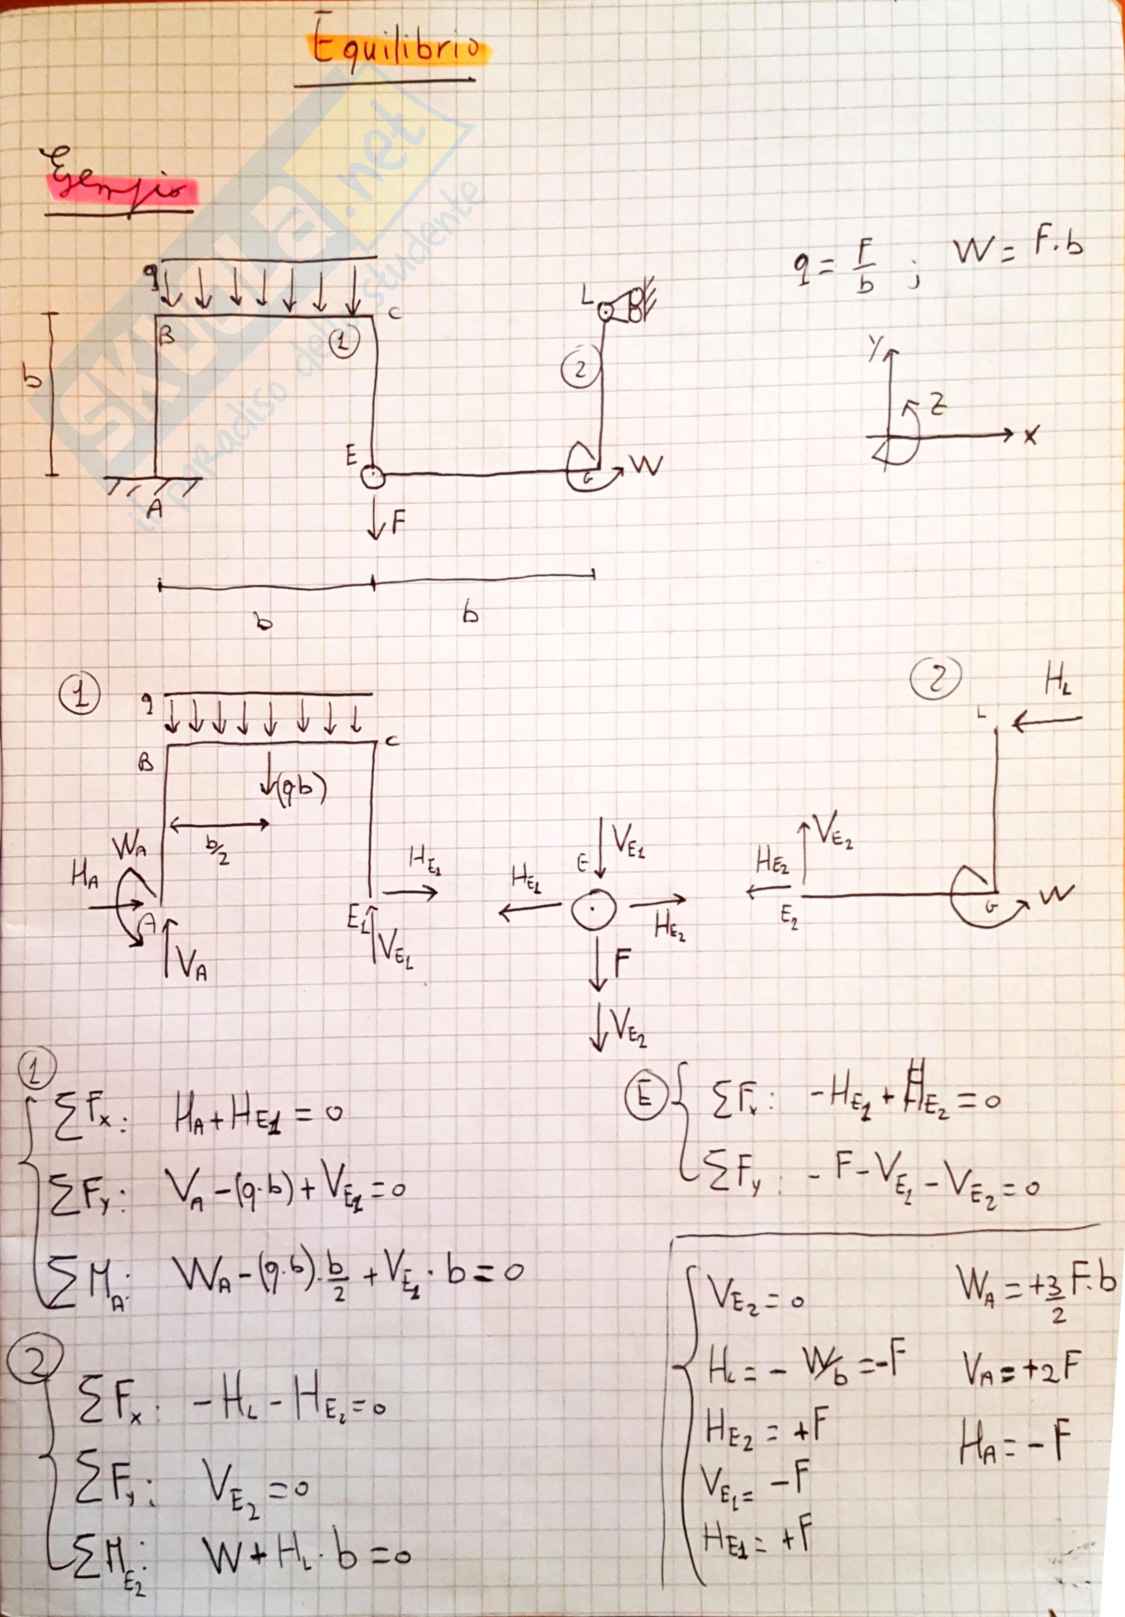 Equilibrio
Esempio
SKUOLA.net
il paradiso dello studente
q = F/b ; W = F·b
q
B
C
1
L
2
b
E
G
W
A
F
b
b
Y
Z
X
1
q
B
C
(qb)
b/2
W_A
H_A
A
V_A
H_E1
E1
V_E1
E
V_E1
H_E1
H_E2
F
V_E2
2
H_L
L
V_E2
H_E2
E2
G
W
1
ΣF_x: H_A + H_E1 = 0
ΣF_y: V_A - (q·b) + V_E1 = 0
ΣM_A: W_A - (q·b)·b/2 + V_E1 · b = 0
2
ΣF_x: -H_L - H_E2 = 0
ΣF_y: V_E2 = 0
ΣM_E2: W + H_L · b = 0
E
ΣF_x: -H_E1 + H_E2 = 0
ΣF_y: -F - V_E1 - V_E2 = 0
V_E2 = 0
H_L = - W/b = -F
H_E2 = +F
V_E1 = -F
H_E1 = +F
W_A = +3/2 F·b
V_A = +2F
H_A = -F